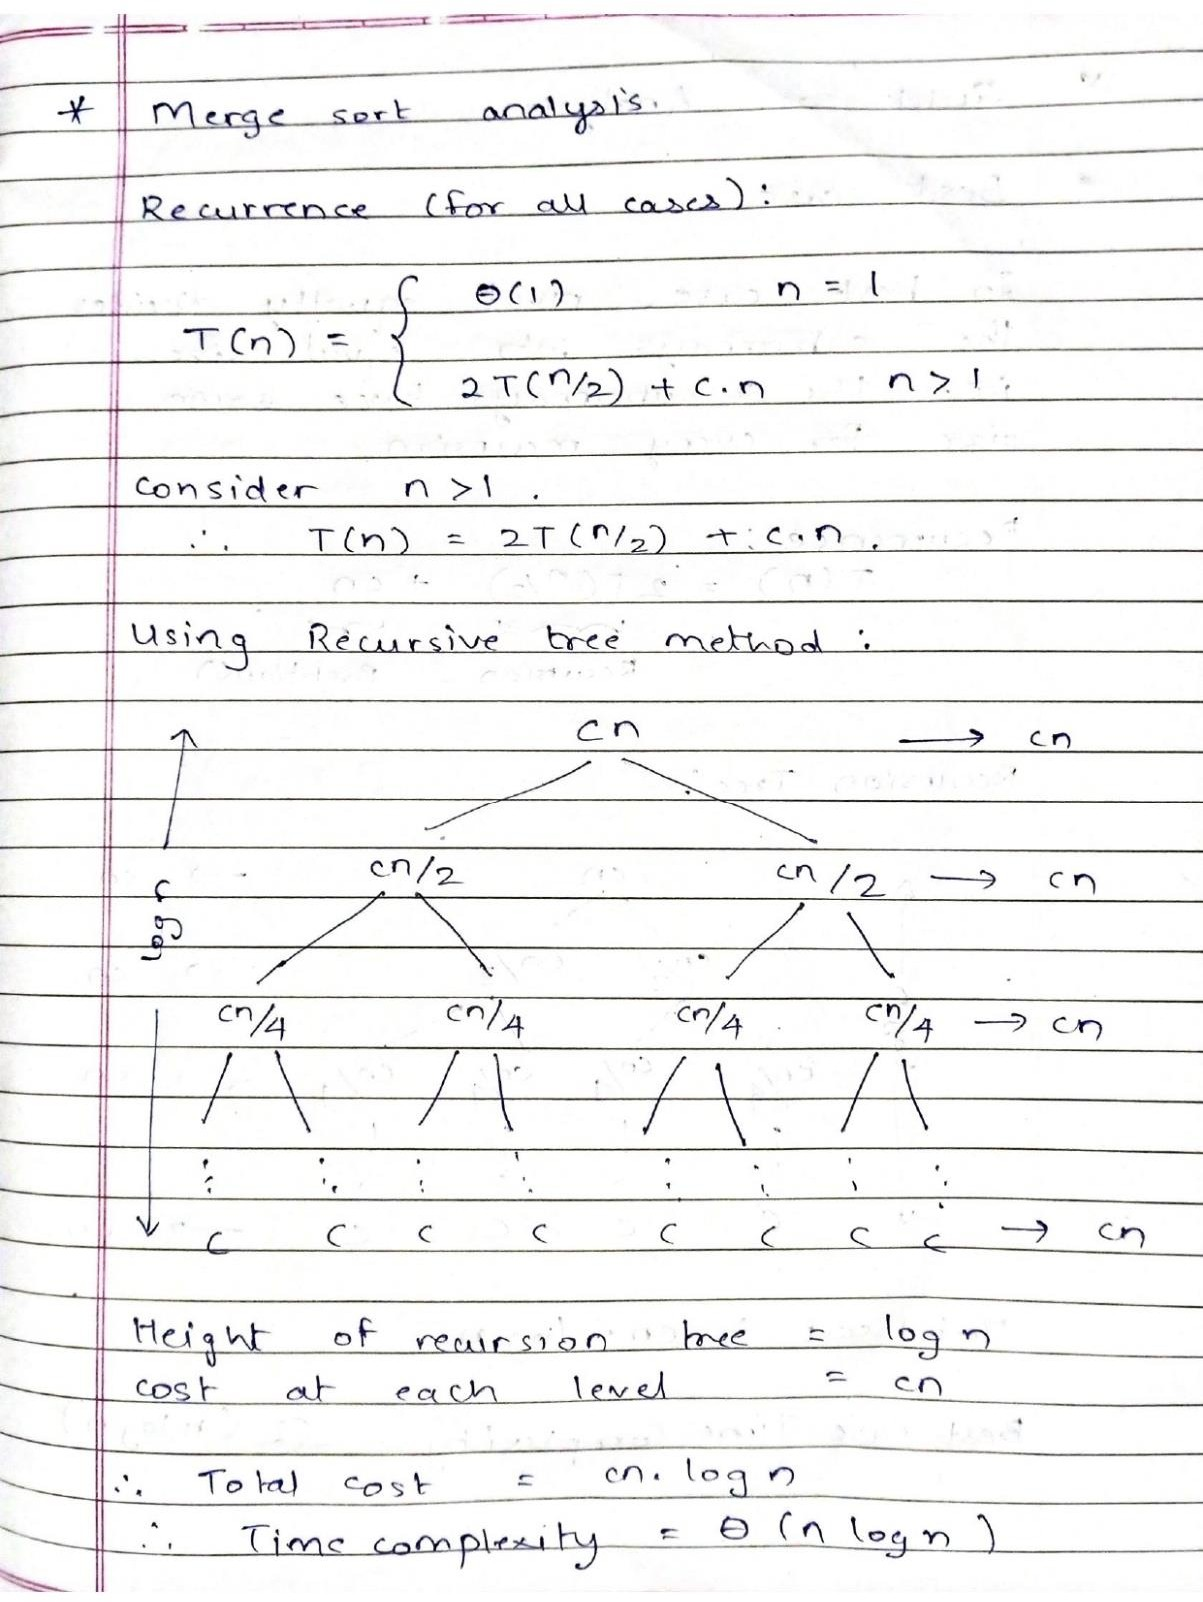 * Merge sort analysis.
Recurrence (for all cases):
T(n) = { Θ(1), n = 1
2T(n/2) + c.n n > 1.
consider n > 1 .
∴ T(n) = 2T(n/2) + c.n.
Using Recursive tree method :
cn → cn
cn/2 cn/2 → cn
log n
cn/4 cn/4 cn/4 cn/4 → cn
c c c c c c c c → cn
Height of recursion tree = log n
cost at each level = cn
∴ Total cost = cn. log n
∴ Time complexity = Θ (n log n)